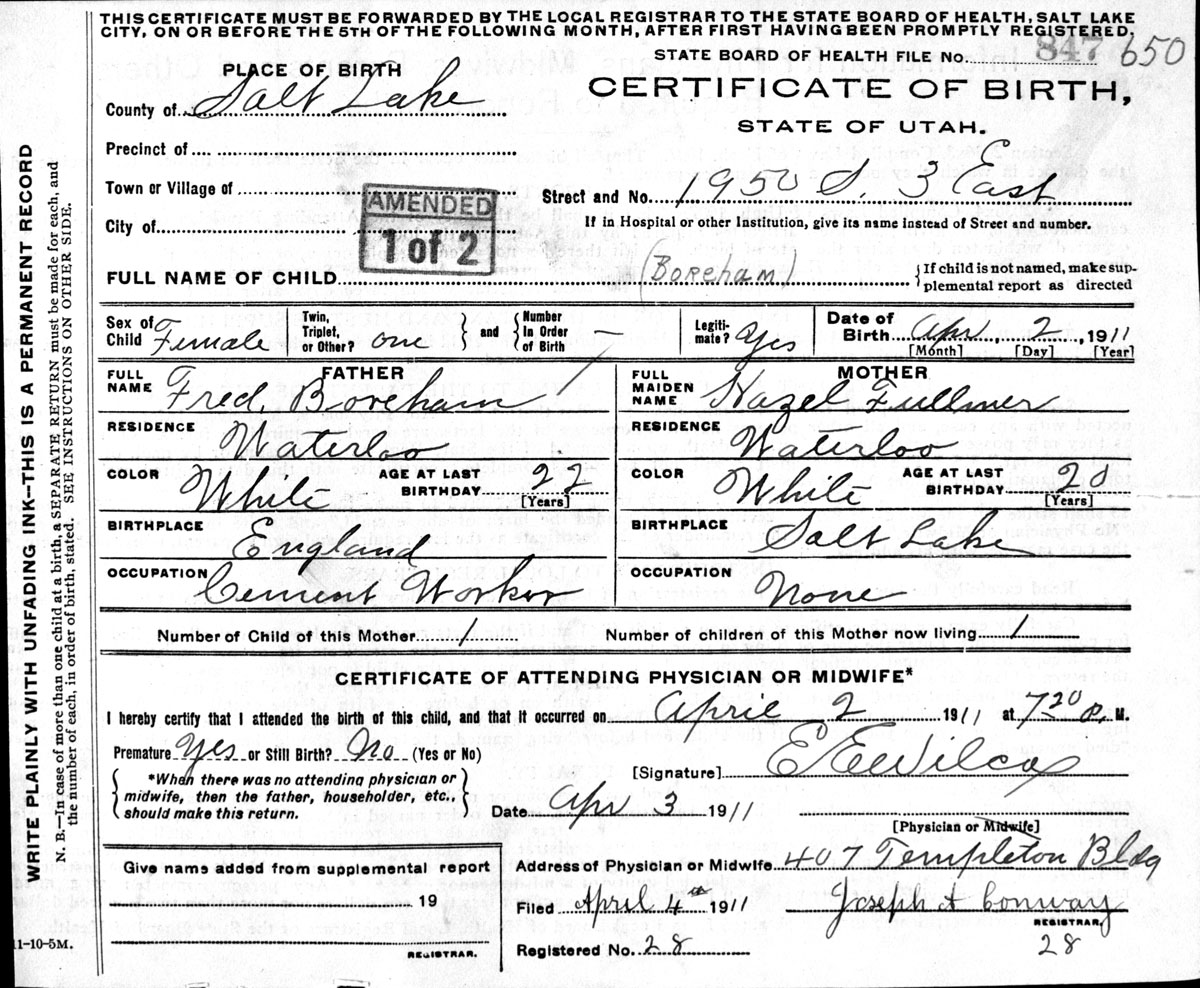 THIS CERTIFICATE MUST BE FORWARDED BY THE LOCAL REGISTRAR TO THE STATE BOARD OF HEALTH, SALT LAKE
CITY, ON OR BEFORE THE 5TH OF THE FOLLOWING MONTH, AFTER FIRST HAVING BEEN PROMPTLY REGISTERED.
STATE BOARD OF HEALTH FILE No. 847 650
PLACE OF BIRTH
CERTIFICATE OF BIRTH,
County of Salt Lake
STATE OF UTAH.
Precinct of
Town or Village of
Street and No. 1950 S. 3 East
City of
If in Hospital or other Institution, give its name instead of Street and number.
AMENDED
1 of 2
FULL NAME OF CHILD (Boreham) If child is not named, make sup-
plemental report as directed
Sex of Child Female Twin, Triplet, or Other? one and Number In Order of Birth — Legiti-mate? Yes Date of Birth Apr, 2, 1911
[Month] [Day] [Year]
FATHER
FULL NAME Fred. Boreham
RESIDENCE Waterloo
COLOR White AGE AT LAST BIRTHDAY 22
[Years]
BIRTHPLACE England
OCCUPATION Cement Worker
MOTHER
FULL MAIDEN NAME Hazel Fullmer
RESIDENCE Waterloo
COLOR White AGE AT LAST BIRTHDAY 20
[Years]
BIRTHPLACE Salt Lake
OCCUPATION None
Number of Child of this Mother 1 Number of children of this Mother now living 1
CERTIFICATE OF ATTENDING PHYSICIAN OR MIDWIFE*
I hereby certify that I attended the birth of this child, and that it occurred on April 2 1911 at 7 20 P. M.
Premature Yes or Still Birth? No (Yes or No)
*When there was no attending physician or
midwife, then the father, householder, etc.,
should make this return.
[Signature] E E Wilcox
Date Apr 3 1911
[Physician or Midwife]
Address of Physician or Midwife 407 Templeton Bldg
Filed April 4th 1911 Joseph A Conway
REGISTRAR.
Registered No. 28 28
Give name added from supplemental report
19
REGISTRAR.
11-10-5M.
WRITE PLAINLY WITH UNFADING INK—THIS IS A PERMANENT RECORD
N. B.—In case of more than one child at a birth, a SEPARATE RETURN must be made for each, and
the number of each, in order of birth, stated. SEE INSTRUCTIONS ON OTHER SIDE.